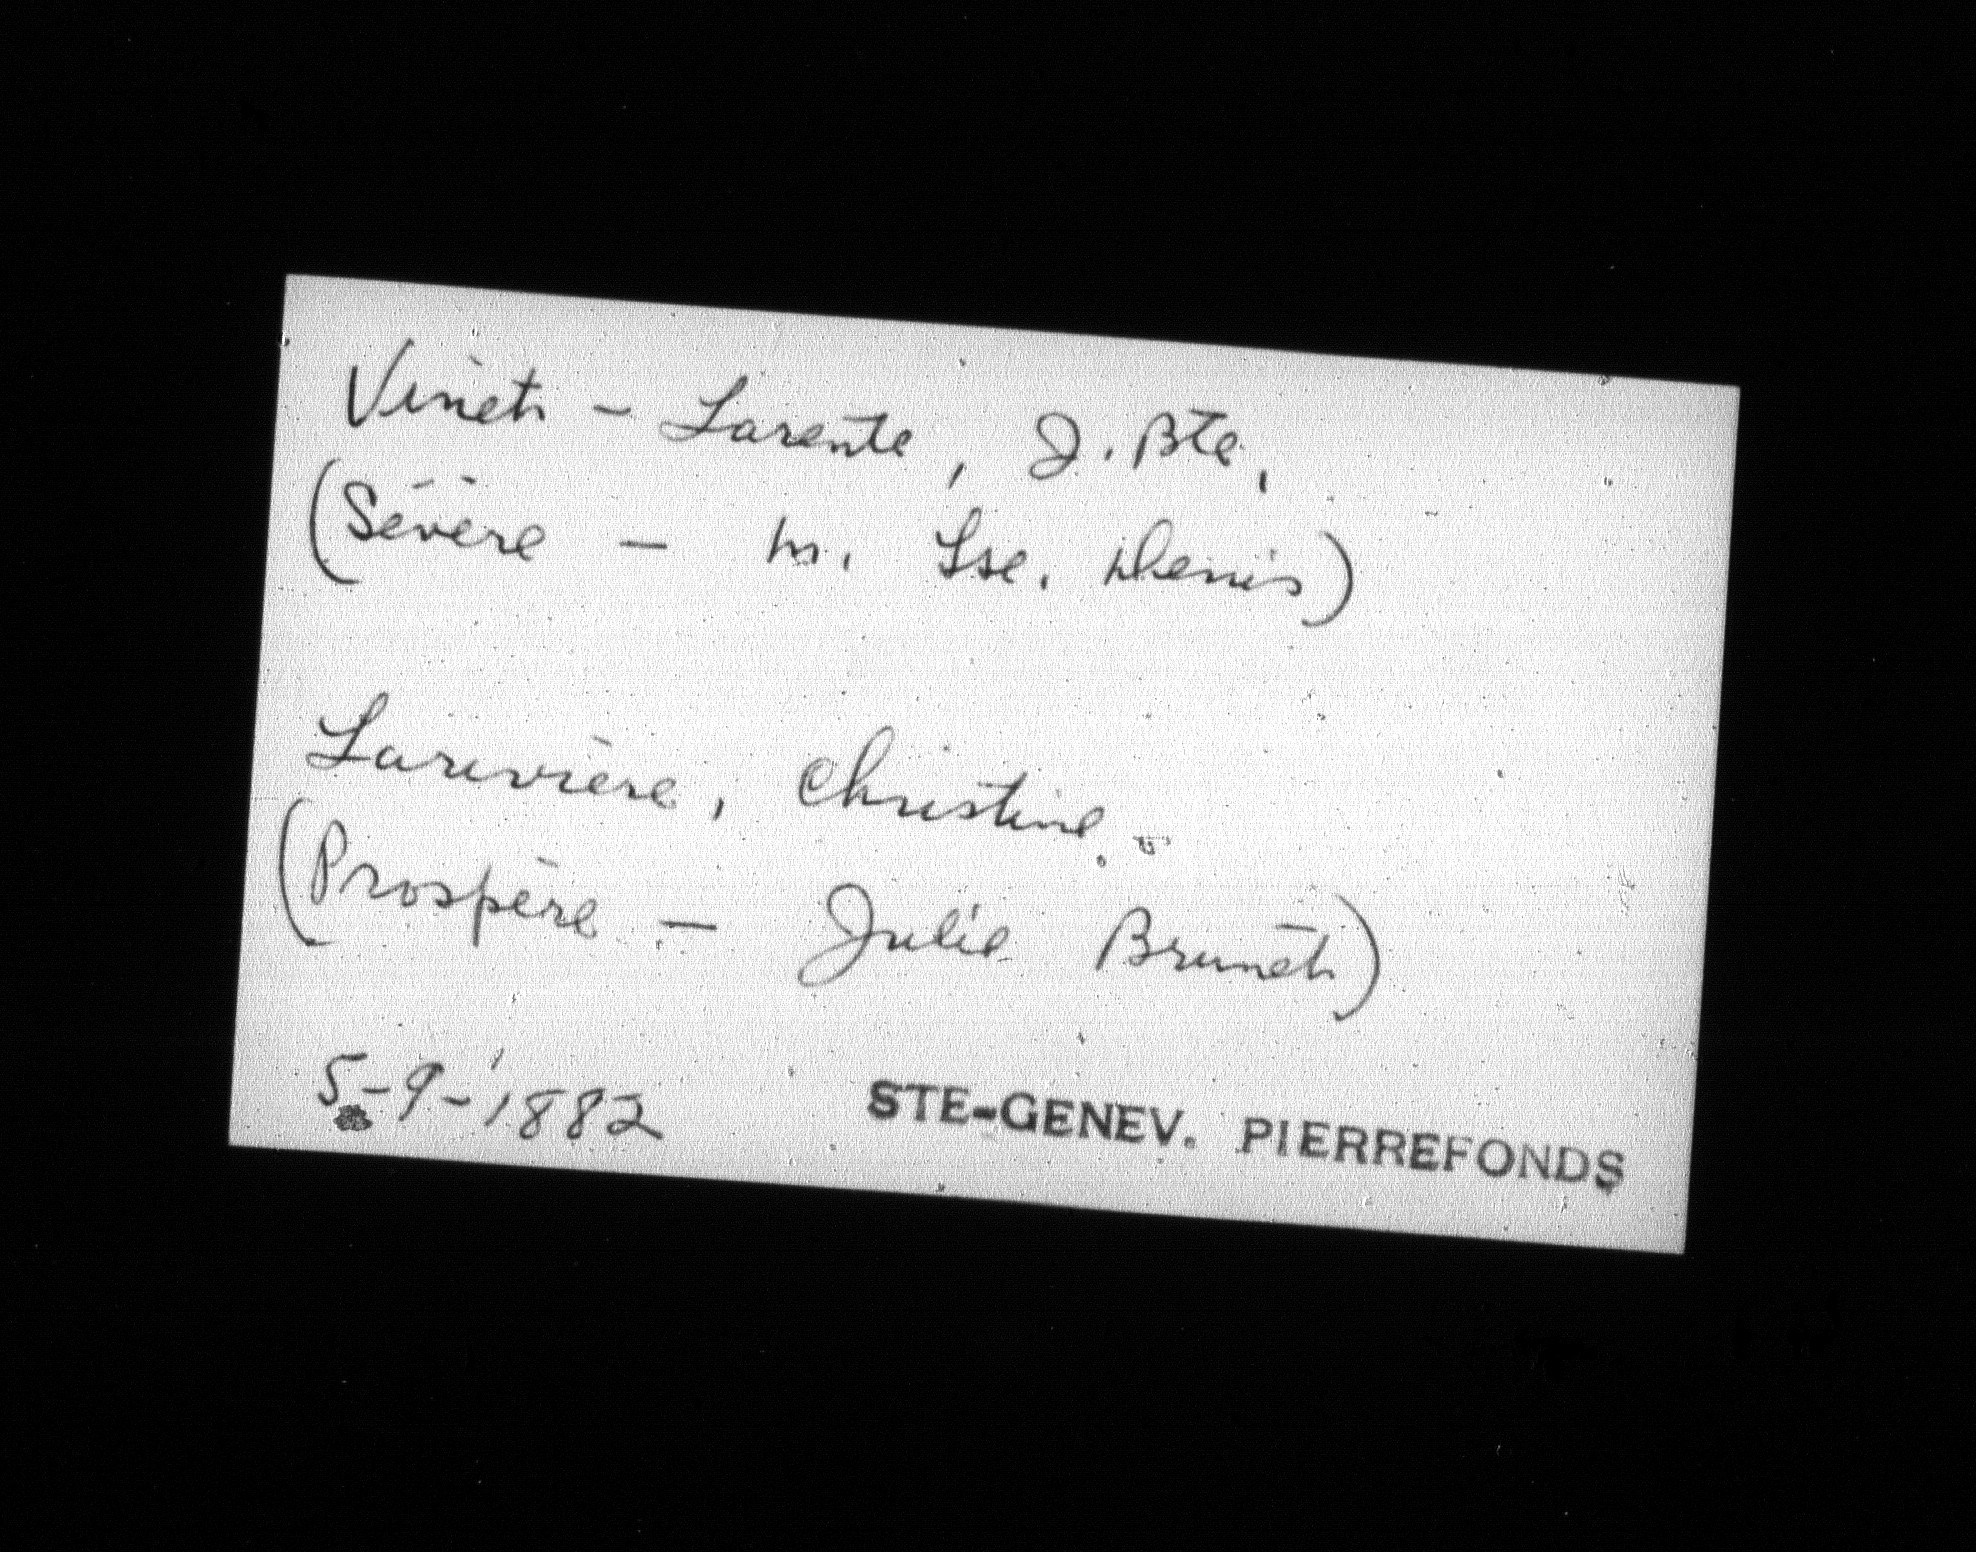 Vinet - Larente, J. Bte,
(Sévère - m. Lse. Denis)
Larivière, Christine.
(Prospère - Julie Brunet)
5-9-1882 STE-GENEV. PIERREFONDS